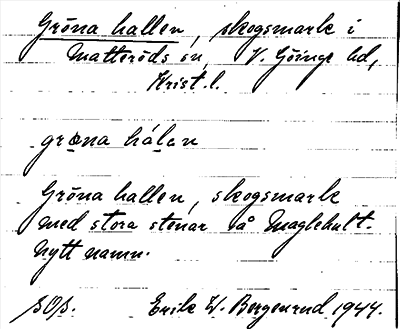 Gröna hallen, skogsmark i
Matteröds sn, V. Göinge hd,
Krist. l.
gröna hálan
Gröna hallen, skogsmark
med stora stenar på Maglehult.
Nytt namn.
Erik W. Bergenrud 1944.